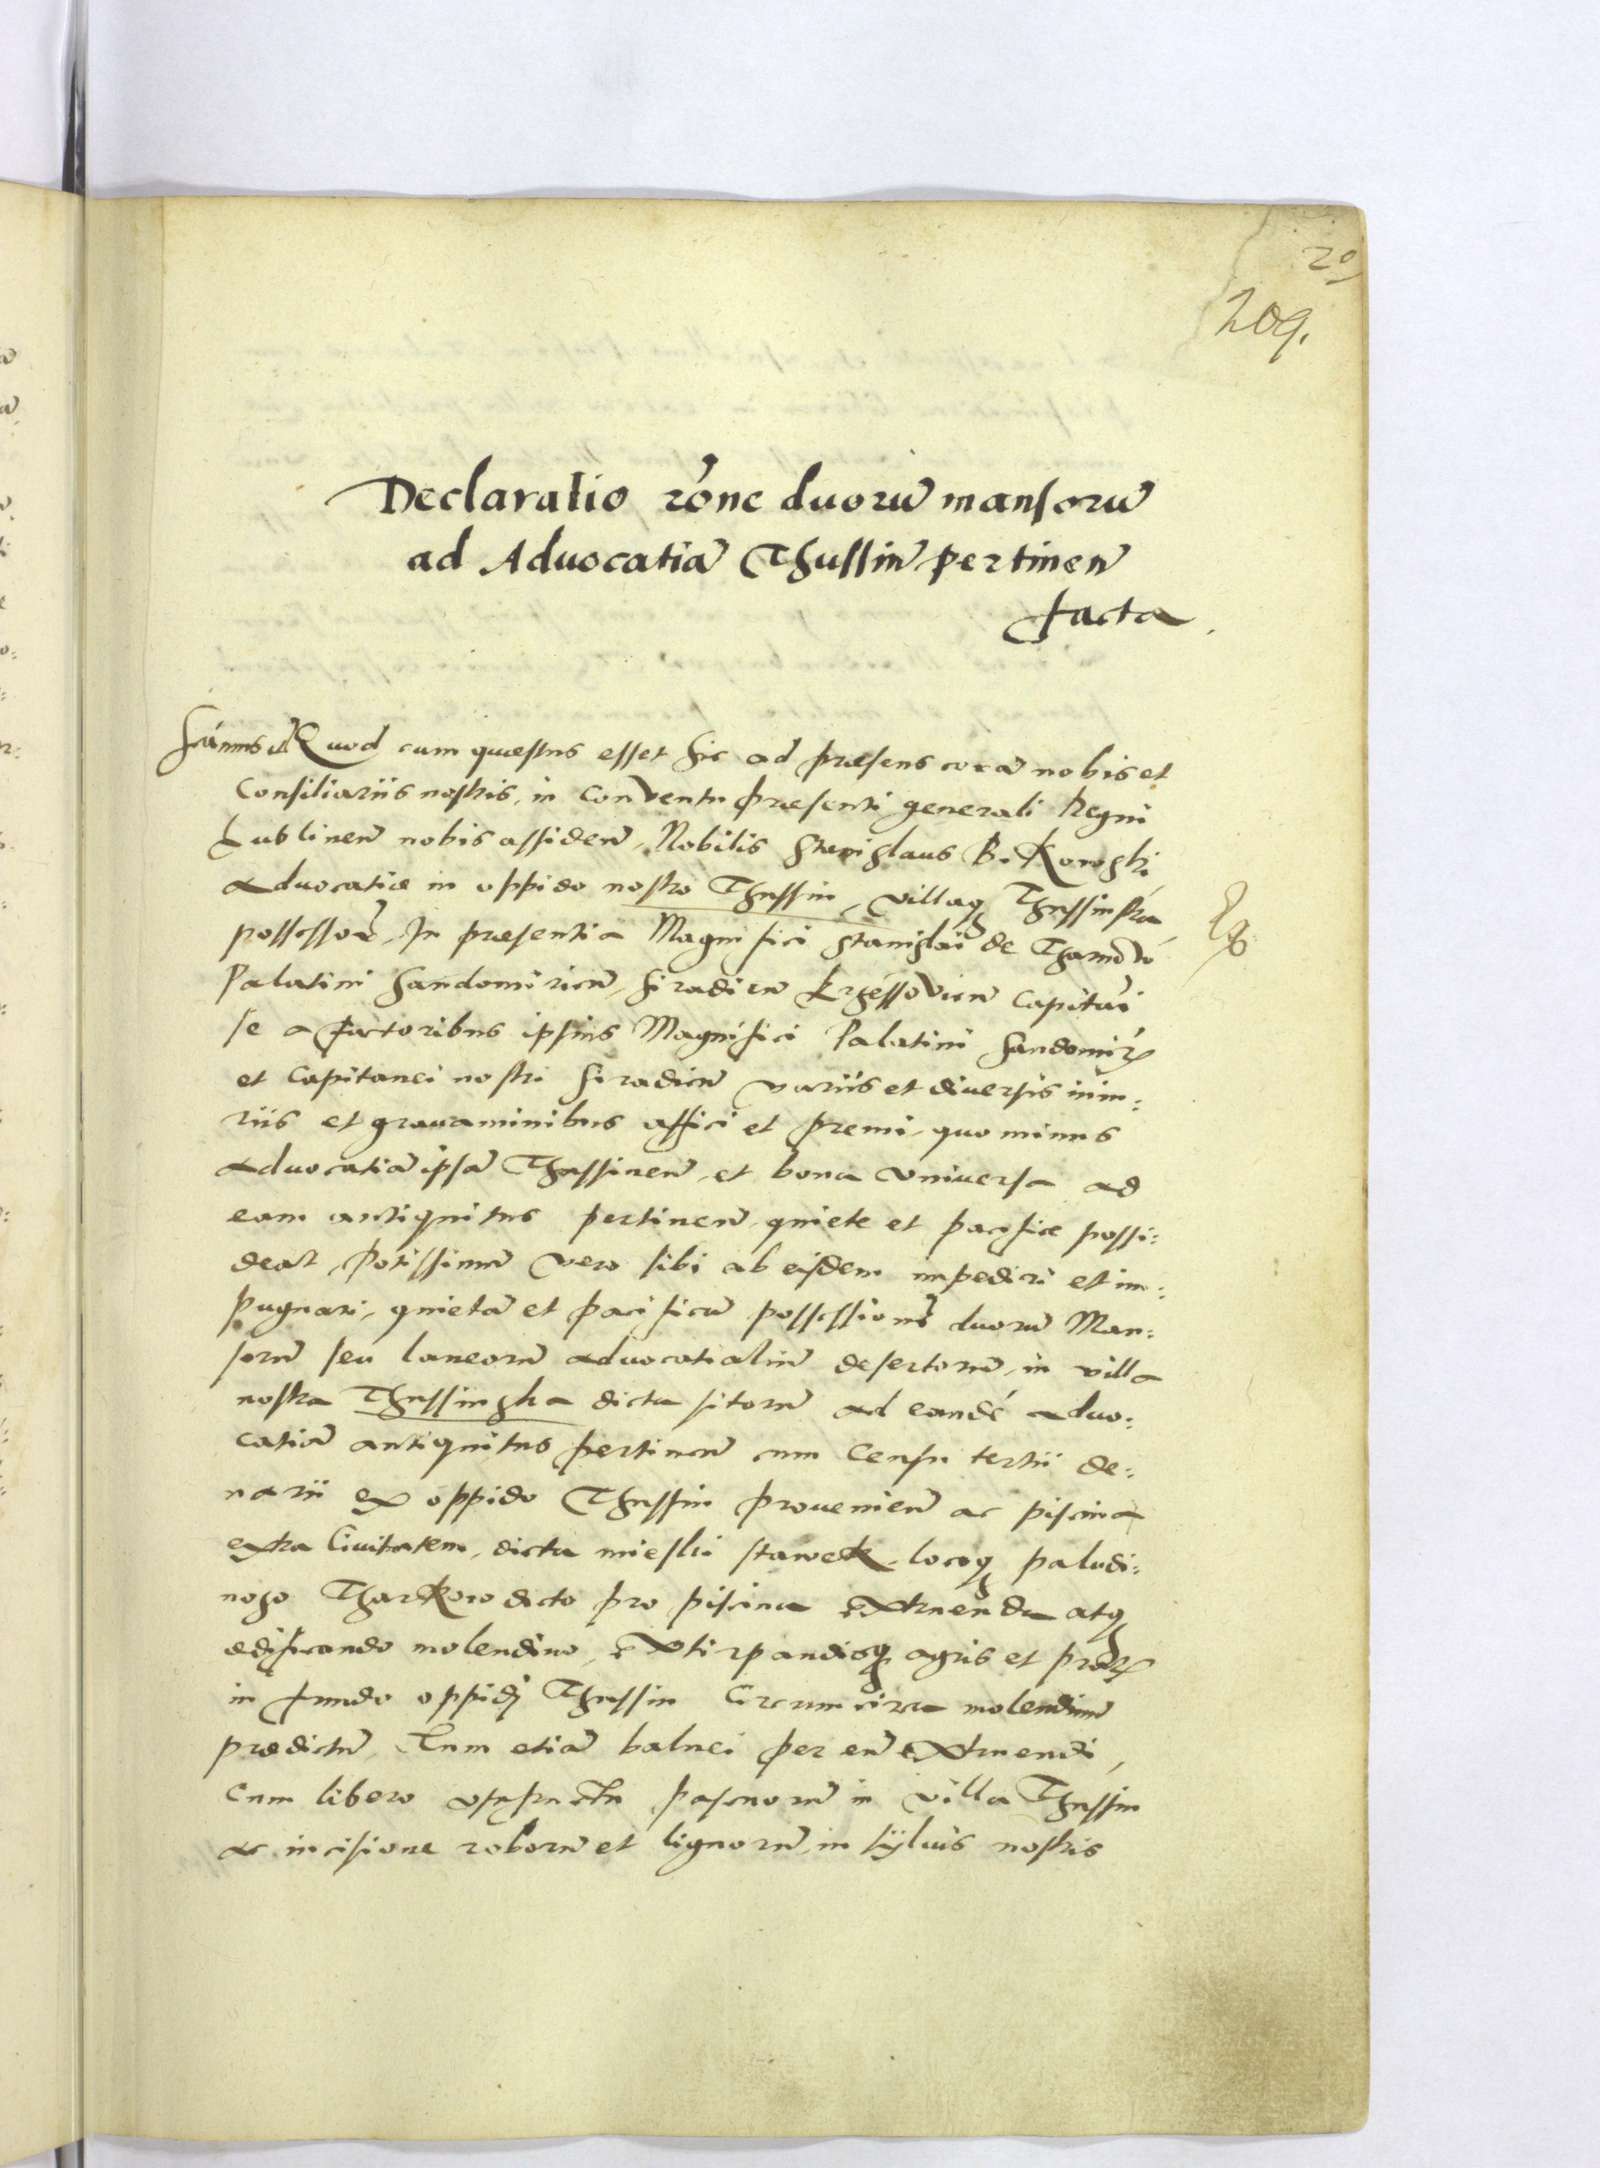 20
209.
Declaratio rõne duorũ mansorũ
ad Aduocatiã Thussiñ pertineñ
facta
Quod cum quaestus esset hic ad praesens corã nobis et
Consiliariis nostris, in Conventu praesenti generali Regni
Lublineñ nobis assideñ, Nobilis Stanislaus
aduocatiae in oppido nostro Thussin, villaq
possessor, In praesentia Magnifici Stanislai de
Palatini Sandomirieñ, Siradieñ Capitãi
se a factoribus ipsius Magnifici Palatini Sandomir
et Capitanei nostri Siradieñ variis et diversis iniu:
riis et grauaminibus affici et premi, quo minus
aduocatiã ipsã Thussineñ, et bona vniuersa ad
eam antiquitus pertineñ, quiete et pacifice possi:
deat, Potissimũ vero sibi ab eisdem impediri et im:
pugnari, quietã et pacificã possessionẽ duorũ Man:
sorũ seu laneorũ aduocatialiũ desertorũ, in villa
nostra Thussingha dicta sitorũ ad eandẽ aduo:
catiã antiquitus pertineñ cum Censu tertii de:
narii ex oppido Thussin proueniẽn ac piscina
extra Ciuitatem, dicta mieski stawek, locoq paludi:
noso Tharkowo dicto pro piscina extruenda atq
edificando molendino, extirpandisq agris et prat
in fundo oppidi Thussin Circumcirca molendinũ
praedictũ, Tum etiã balnei per eũ extruendi,
Cum libero vsufructu pascuorũ in villa Thussin
ac incisione roborũ et lignorũ, in syluis nostris